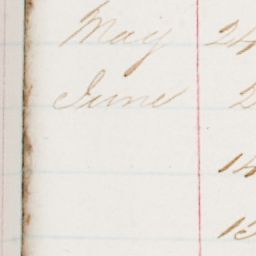 May 24
June 2
14
15